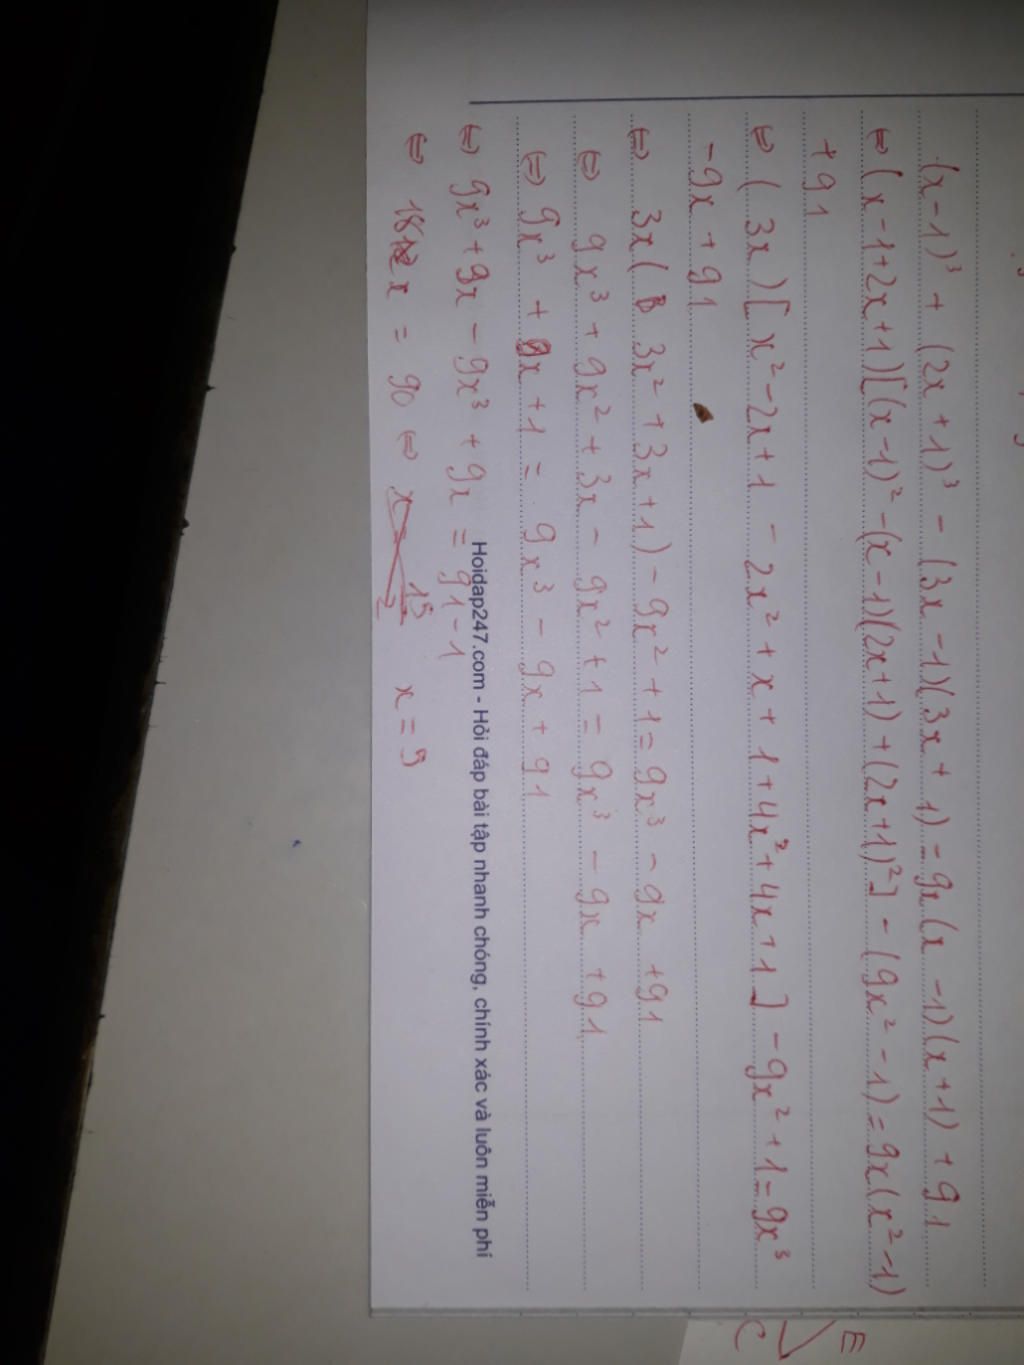 (x-1)³ + (2x+1)³ - (3x-1)(3x+1) = 9x(x-1)(x+1) + 91
⇔ (x-1+2x+1)[(x-1)² - (x-1)(2x+1) + (2x+1)²] - (9x²-1) = 9x(x²-1)
+91
⇔ (3x)[x²-2x+1 - 2x²+x+1+4x²+4x+1] - 9x²+1 = 9x³
-9x+91
⇔ 3x(3x²+3x+1) - 9x²+1 = 9x³-9x+91
⇔ 9x³+9x²+3x - 9x²+1 = 9x³-9x+91
⇔ 9x³+9x+1 = 9x³-9x+91
⇔ 9x³+9x-9x³+9x = 91-1
Hoidap247.com - Hỏi đáp bài tập nhanh chóng, chính xác và luôn miễn phí
⇔ 18x = 90 ⇔ x = 5
E
C